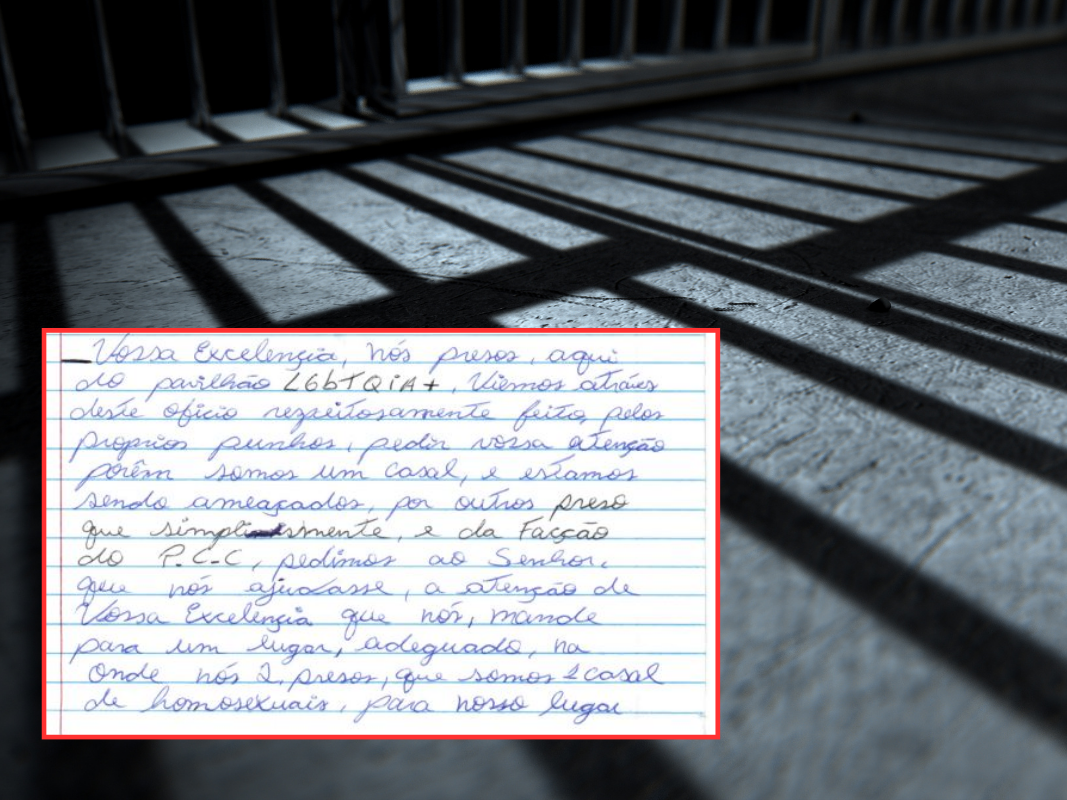 Vossa Excelençia, nós presos, aqui
do pavilhão LGbTQiA+, Viemos atráves
deste oficio respeitosamente feito, pelos
proprios punhos, pedir vossa atenção
porêm somos um casal, e estamos
sendo ameaçados, por outros preso
que simplismente, e da Facção
do P.C.C, pedimos ao Senhor.
que nós ajudasse, a atenção de
Vossa Excelençia que nós, mande
para um lugar, adequado, na
onde nós 2, presos, que somos 1 casal
de homosexuais, para nosso lugar